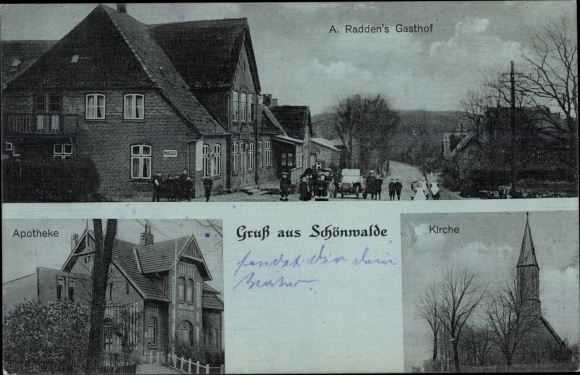 A. Radden's Gasthof
Apotheke
Gruß aus Schönwalde
Kirche
sendet dir dein
Bruder.